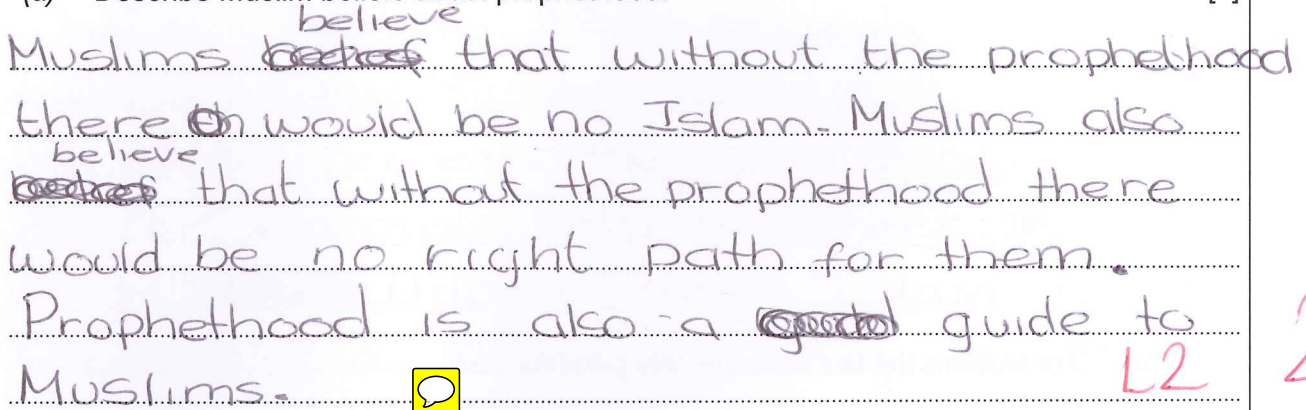 believe
Muslims that without the prophethood
there would be no Islam. Muslims also
believe
that without the prophethood there
would be no right path for them.
Prophethood is also a guide to
Muslims.
L2